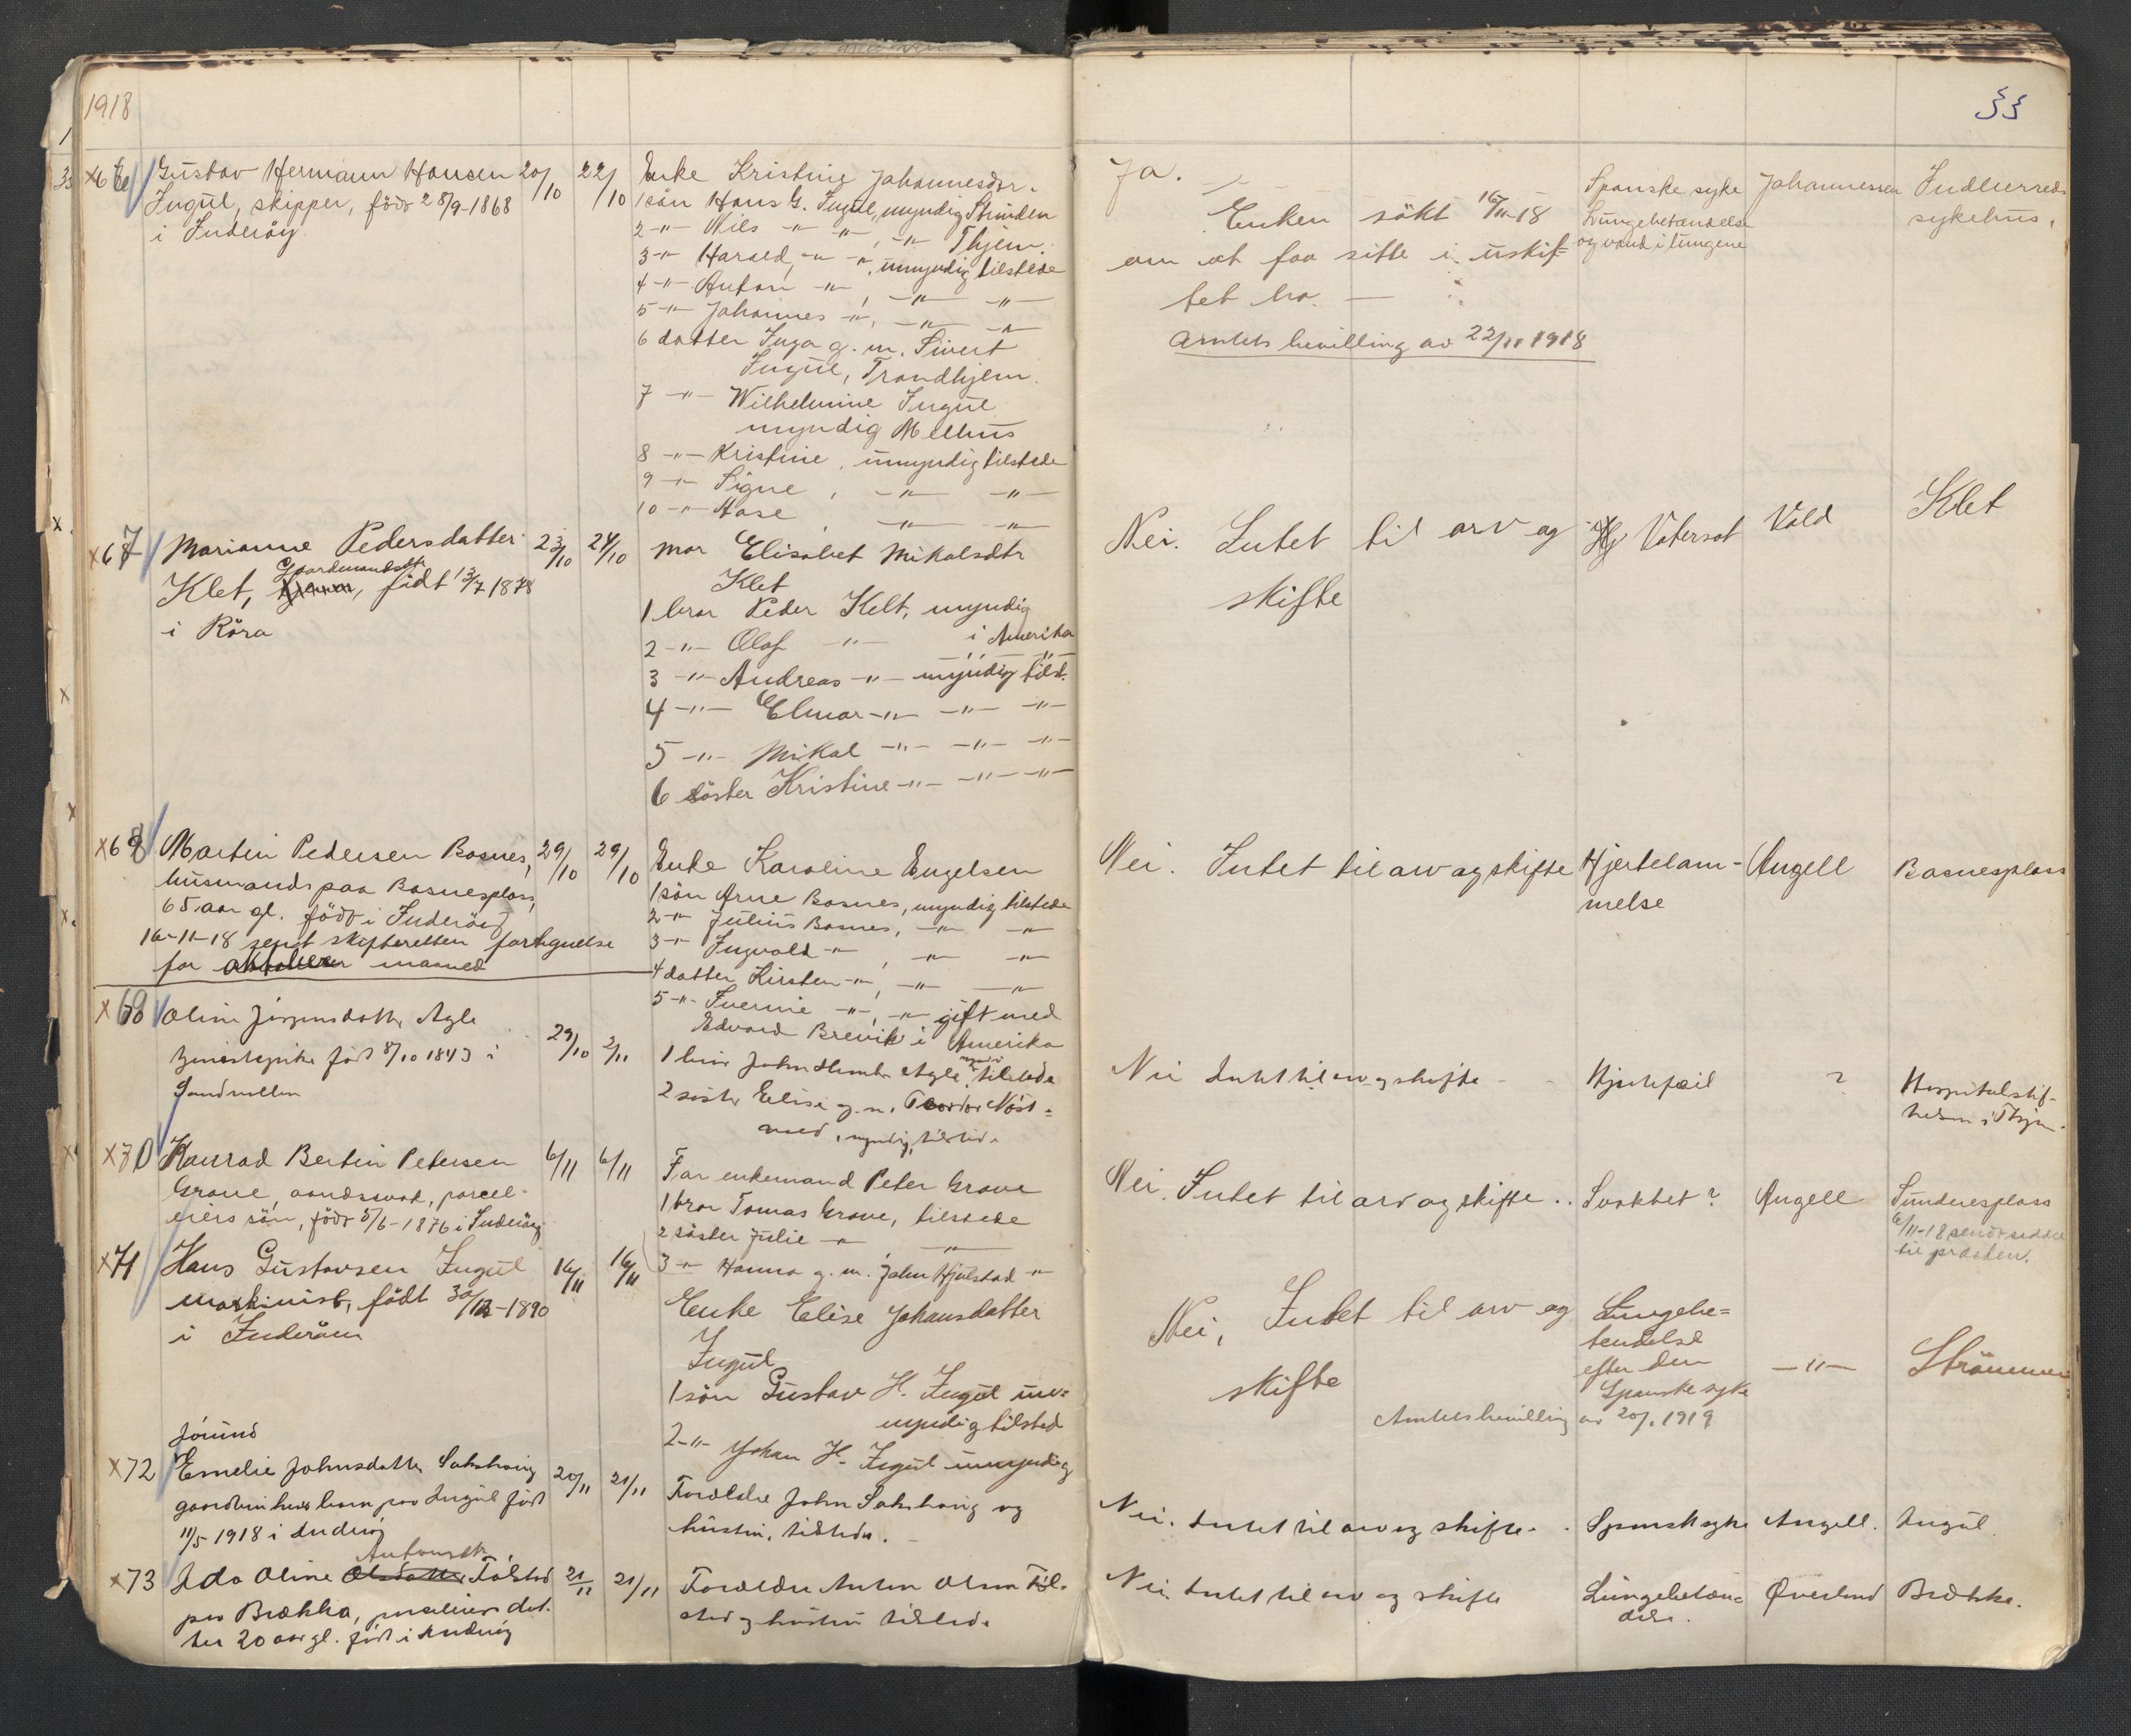 1918
33
x66 Gustav Hermann Hansen 20/10 22/10
Ingul, skipper, född 28/9-1868
i Inderöy
Enke Kristine Johannesdtr.
1 sön Hans G. Ingul, myndig Strinden
2 -"- Nils -"- -"-, -"- Thjem.
3 -"- Harald, -"- -"-, umyndig tilstede
4 -"- Anton -"- , -"- -"-
5 -"- Johannes -"-, -"- -"-
6 datter Inga g. m. Sivert
Ingul, Trondhjem.
7 -"- Wilhelmine Ingul
myndig Melhus
8 -"- Kristine, umyndig tilstede
9 -"- Signe, -"- -"-
10 -"- Aase, -"- -"-
Ja.
Enken sökt 16/11-18
om at faa sitte i uskif-
tet bo.
Amtets bevilling av 22/11 1918
Spanske syke
Lungebetændelse
og vand i lungene
Johannessen
Indherreds
sykehus.
x67 Marianne Pedersdatter 23/10 24/10
Klet, Gaardmandsdtr, født 13/7 1878
i Röra
mor Elisabet Mikalsdtr
Klet
1 bror Peder Kelt, myndig
i Amerika
2 -"- Olaf -"- -"- -"-
3 -"- Andreas -"- myndig tilst.
4 -"- Elmar -"- -"- -"-
5 -"- Mikal -"- -"- -"-
6 söster Kristine -"- -"- -"-
Nei. Intet til arv og
skifte
Vatersot
Vold
Klet
x68 Martin Pedersen Bosnes, 29/10 29/10
husmand paa Bosnesplass,
65 aar gl. född i Inderöy
16-11-18 sendt skifteretten fortegnelse
for oktober maaned
Enke Karoline Engelsen
1 sön Arne Bosnes, myndig tilstede
2 -"- Julius Bosnes, -"- -"-
3 -"- Ingvald -"- , -"- -"-
4 datter Kirsten -"-, -"- -"-
5 -"- -"-, -"- gift med
Edvard Brevik i Amerika
Nei. Intet til arv og skifte
Hjertelam-
melse
Angell
Bosnesplass
x69 Oline Jörgensdatter Agle 29/10 2/11
född 8/10 1843 i
1 bror John Agle myndig tilstede
2 söster Elise g. m. Teodor
myndig, tilstede
Nei Intet til arv og skifte
Hjertefeil
?
Hospitalstif-
telsen i Thjem.
x70 Konrad Bertin Petersen 6/11 6/11
Grove, aandssvak, parcel-
eiers sön, född 5/6-1876 i Inderöy
Far enkemand Peter Grove
1 bror Tomas Grove, tilstede
2 söster Julie -"- , -"-
3 -"- Hanna g. m. John Hjulstad -"-
Nei. Intet til arv og skifte.
Svakhet?
Angell
Sundnesplass
6/11-18 sendt seddel
til presten.
x71 Hans Gustavsen Ingul 16/11 16/11
maskinist, födt 30/12-1890
i Inderöen
Enke Elise Johansdatter
Ingul
1 sön Gustav H. Ingul um-
myndig tilsted
2 -"- Johan H. Ingul umyndig
Nei, Intet til arv og
skifte
Amtets bevilling av 20/1 1919
Lungebe=
tendelse
efter den
Spanske syke
-"-
Strömmen
Jörund
x72 Emelie Johnsdatter Sakshaug 20/11 21/11
barn paa Ingul född
11/5 1918 i Inderöy
Forældre John Sakshaug og
hustru, tilstede.
Nei. Intet til arv og skifte.
Spansk syke
Angell.
Ingul.
Antonsdtr.
x73 Ida Oline Olsdatter 21/11 21/11
paa Brækka, parceleiers dat-
ter 20 aar gl. född i Inderöy
Forældre Anton Olsen
og hustru tilstede
Nei. Intet til arv og skifte
Lungebetæn-
delse.
Överland
Brækka.